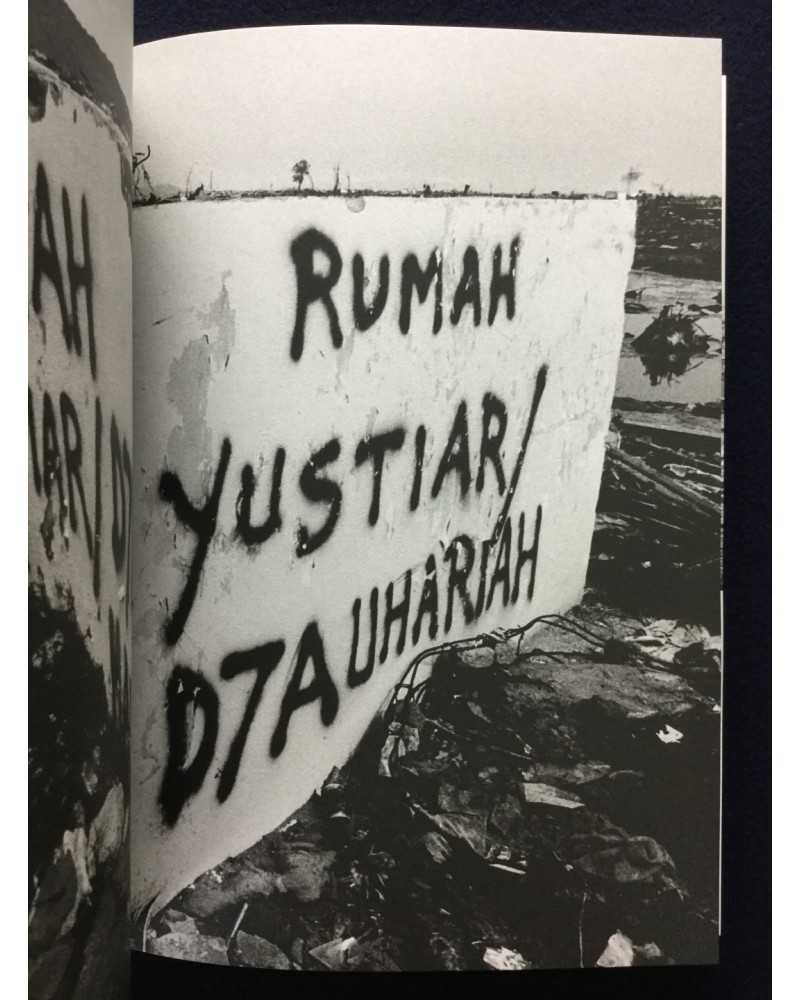 RUMAH
YUSTIAR/
D7AUHARIAH
AH